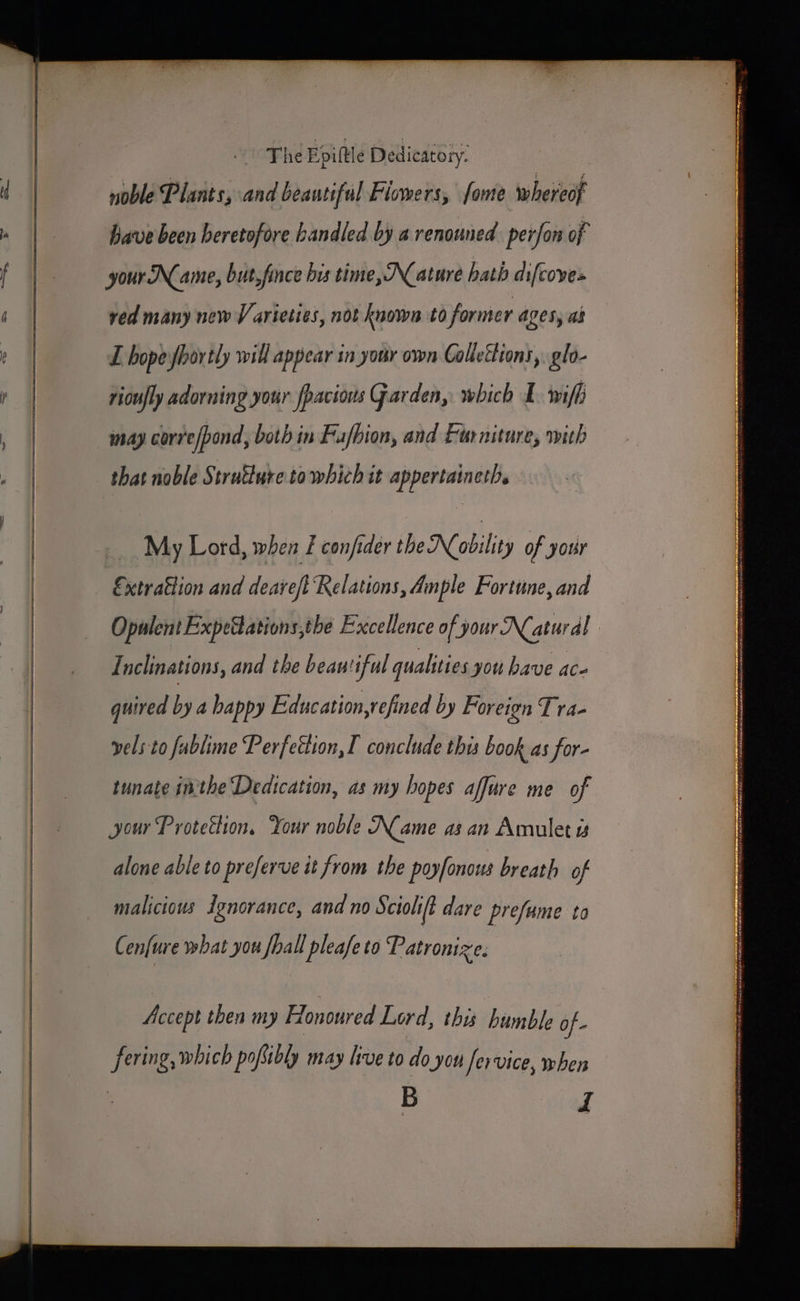 The Epiſtle Dedicatory.
noble Plants, and beautiful Flowers, ſome whereof
have been heretofore handled by a renouned perſon of
your Name, but,ſince his time, Nature hath diſcove-
red many new Varieties, not known to former ages, as
I hope ſhortly will appear in your own Collections, glo-
riouſly adorning your ſpacious Garden, which I wiſh
may correſpond, both in Faſhion, and Furniture, with
that noble Structure to which it appertaineth.
My Lord, when I conſider the Nobility of your
Extraction and deareſt Relations, Ample Fortune, and
Opulent Expectations,the Excellence of your Natural
Inclinations, and the beautiful qualities you have ac-
quired by a happy Education,refined by Foreign Tra-
vels to ſublime Perfection,I conclude this book as for-
tunate in the Dedication, as my hopes aſſure me of
your Protection. Your noble Name as an Amulet is
alone able to preſerve it from the poyſonous breath of
malicious Ignorance, and no Scioliſt dare preſume to
Cenſure what you ſhall pleaſe to Patronize.
Accept then my Honoured Lord, this humble of-
fering,which poſsibly may live to do you ſervice, when
B I